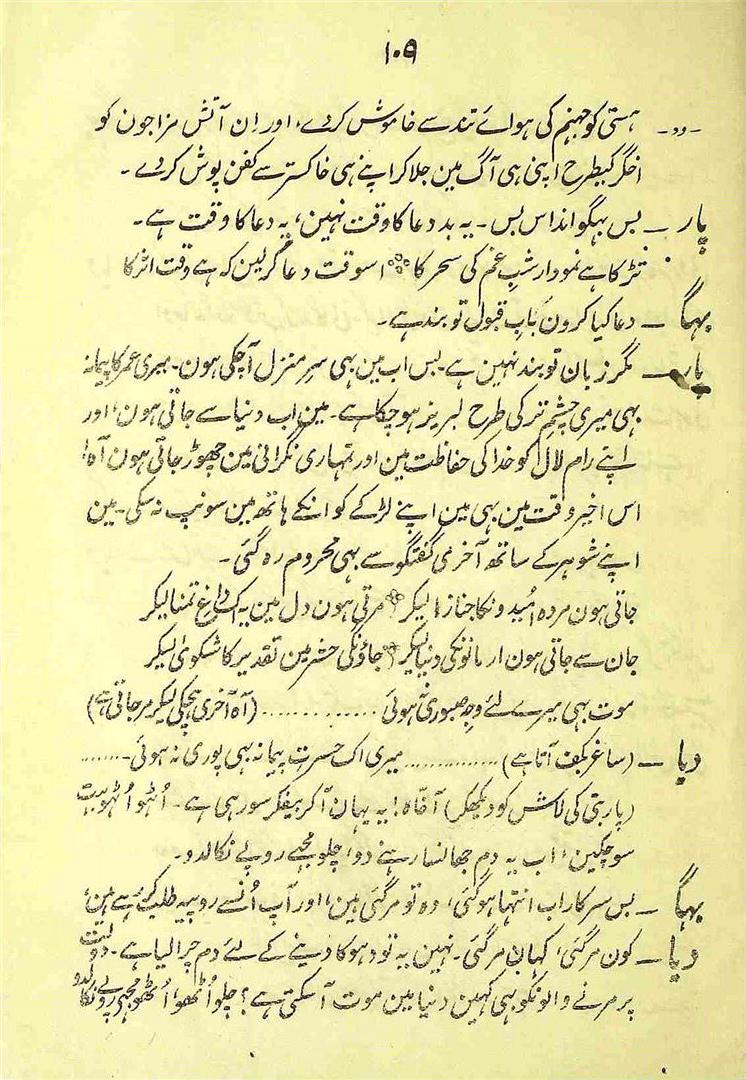 ۱۰۹
-،،- ہستی کو جہنم کی ہوائے تند سے خاموش کردے، اور اِن آتش مزاجون کو
اخگر کیطرح اپنی ہی آگ مین جلا کر اپنے ہی خاکستر سے کفن پوش کردے -
پار - بس بہگوانداس بس - یہ بد دعا کا وقت نہین، یہ دعا کا وقت ہے -
تڑکا ہے نمودار شبِ غم کی سحر کا اسوقت دعا کرلین کہ ہے وقت اثر کا
بہگا - دعا کیا کرون بابِ قبول تو بند ہے -
پار - مگر زبان تو بند نہین ہے - بس اب مین بہی سرِ منزل آچکی ہون - میری عمر کا پیمانہ
بہی میری چشمِ تر کی طرح لبریز ہوچکا ہے - مین اب دنیا سے جاتی ہون، اور
اپنے رام لال کو خدا کی حفاظت مین اور تمہاری نگرانی مین چھوڑ جاتی ہون آہ!
اس اخیر وقت مین بہی مین اپنے لڑکے کو انکے ہاتھ مین سونپ نہ سکی - مین
اپنے شوہر کے ساتھ آخری گفتگو سے بہی محروم رہ گئی -
جاتی ہون مردہ اُمیدونکا جنازا لیکر مرتی ہون دل مین یہ اک داغِ تمنا لیکر
جان سے جاتی ہون ارمانونکی دنیا لیکر جاؤنگی حشر مین تقدیر کا شکویٰ لیکر
موت بہی میرے لئے وجہِ صبوری نہوئی ............ (آہ آخری ہچکی لیکر مرجاتی ہے)
دیا - (ساغر بکف آتا ہے) .............. میری اک حسرتِ پیمانہ بہی پوری نہ ہوئی - .......
(پاربتی کی لاش کو دیکھکر) آخاہ! یہ یہان آکر بیفکر سو رہی ہے - اُٹہو اُٹہو بہت
سوچکین، اب یہ دم جھانسا رہنے دو، چلو مجہے روپے نکالدو -
بہگا - بس سرکار اب انتہا ہوگئی، وہ تو مرگئی ہین، اور آپ اُنسے روپیہ طلب کر رہے ہین،
دیا - کون مرگئی، کہان مرگئی - نہین یہ تو دہوکا دینے کے لئے دم چرا لیا ہے - دولت
پر مرنے والونکو بہی کہین دنیا مین موت آسکتی ہے؟ چلو اُٹھو، اُٹھو مجہے روپے نکالدو